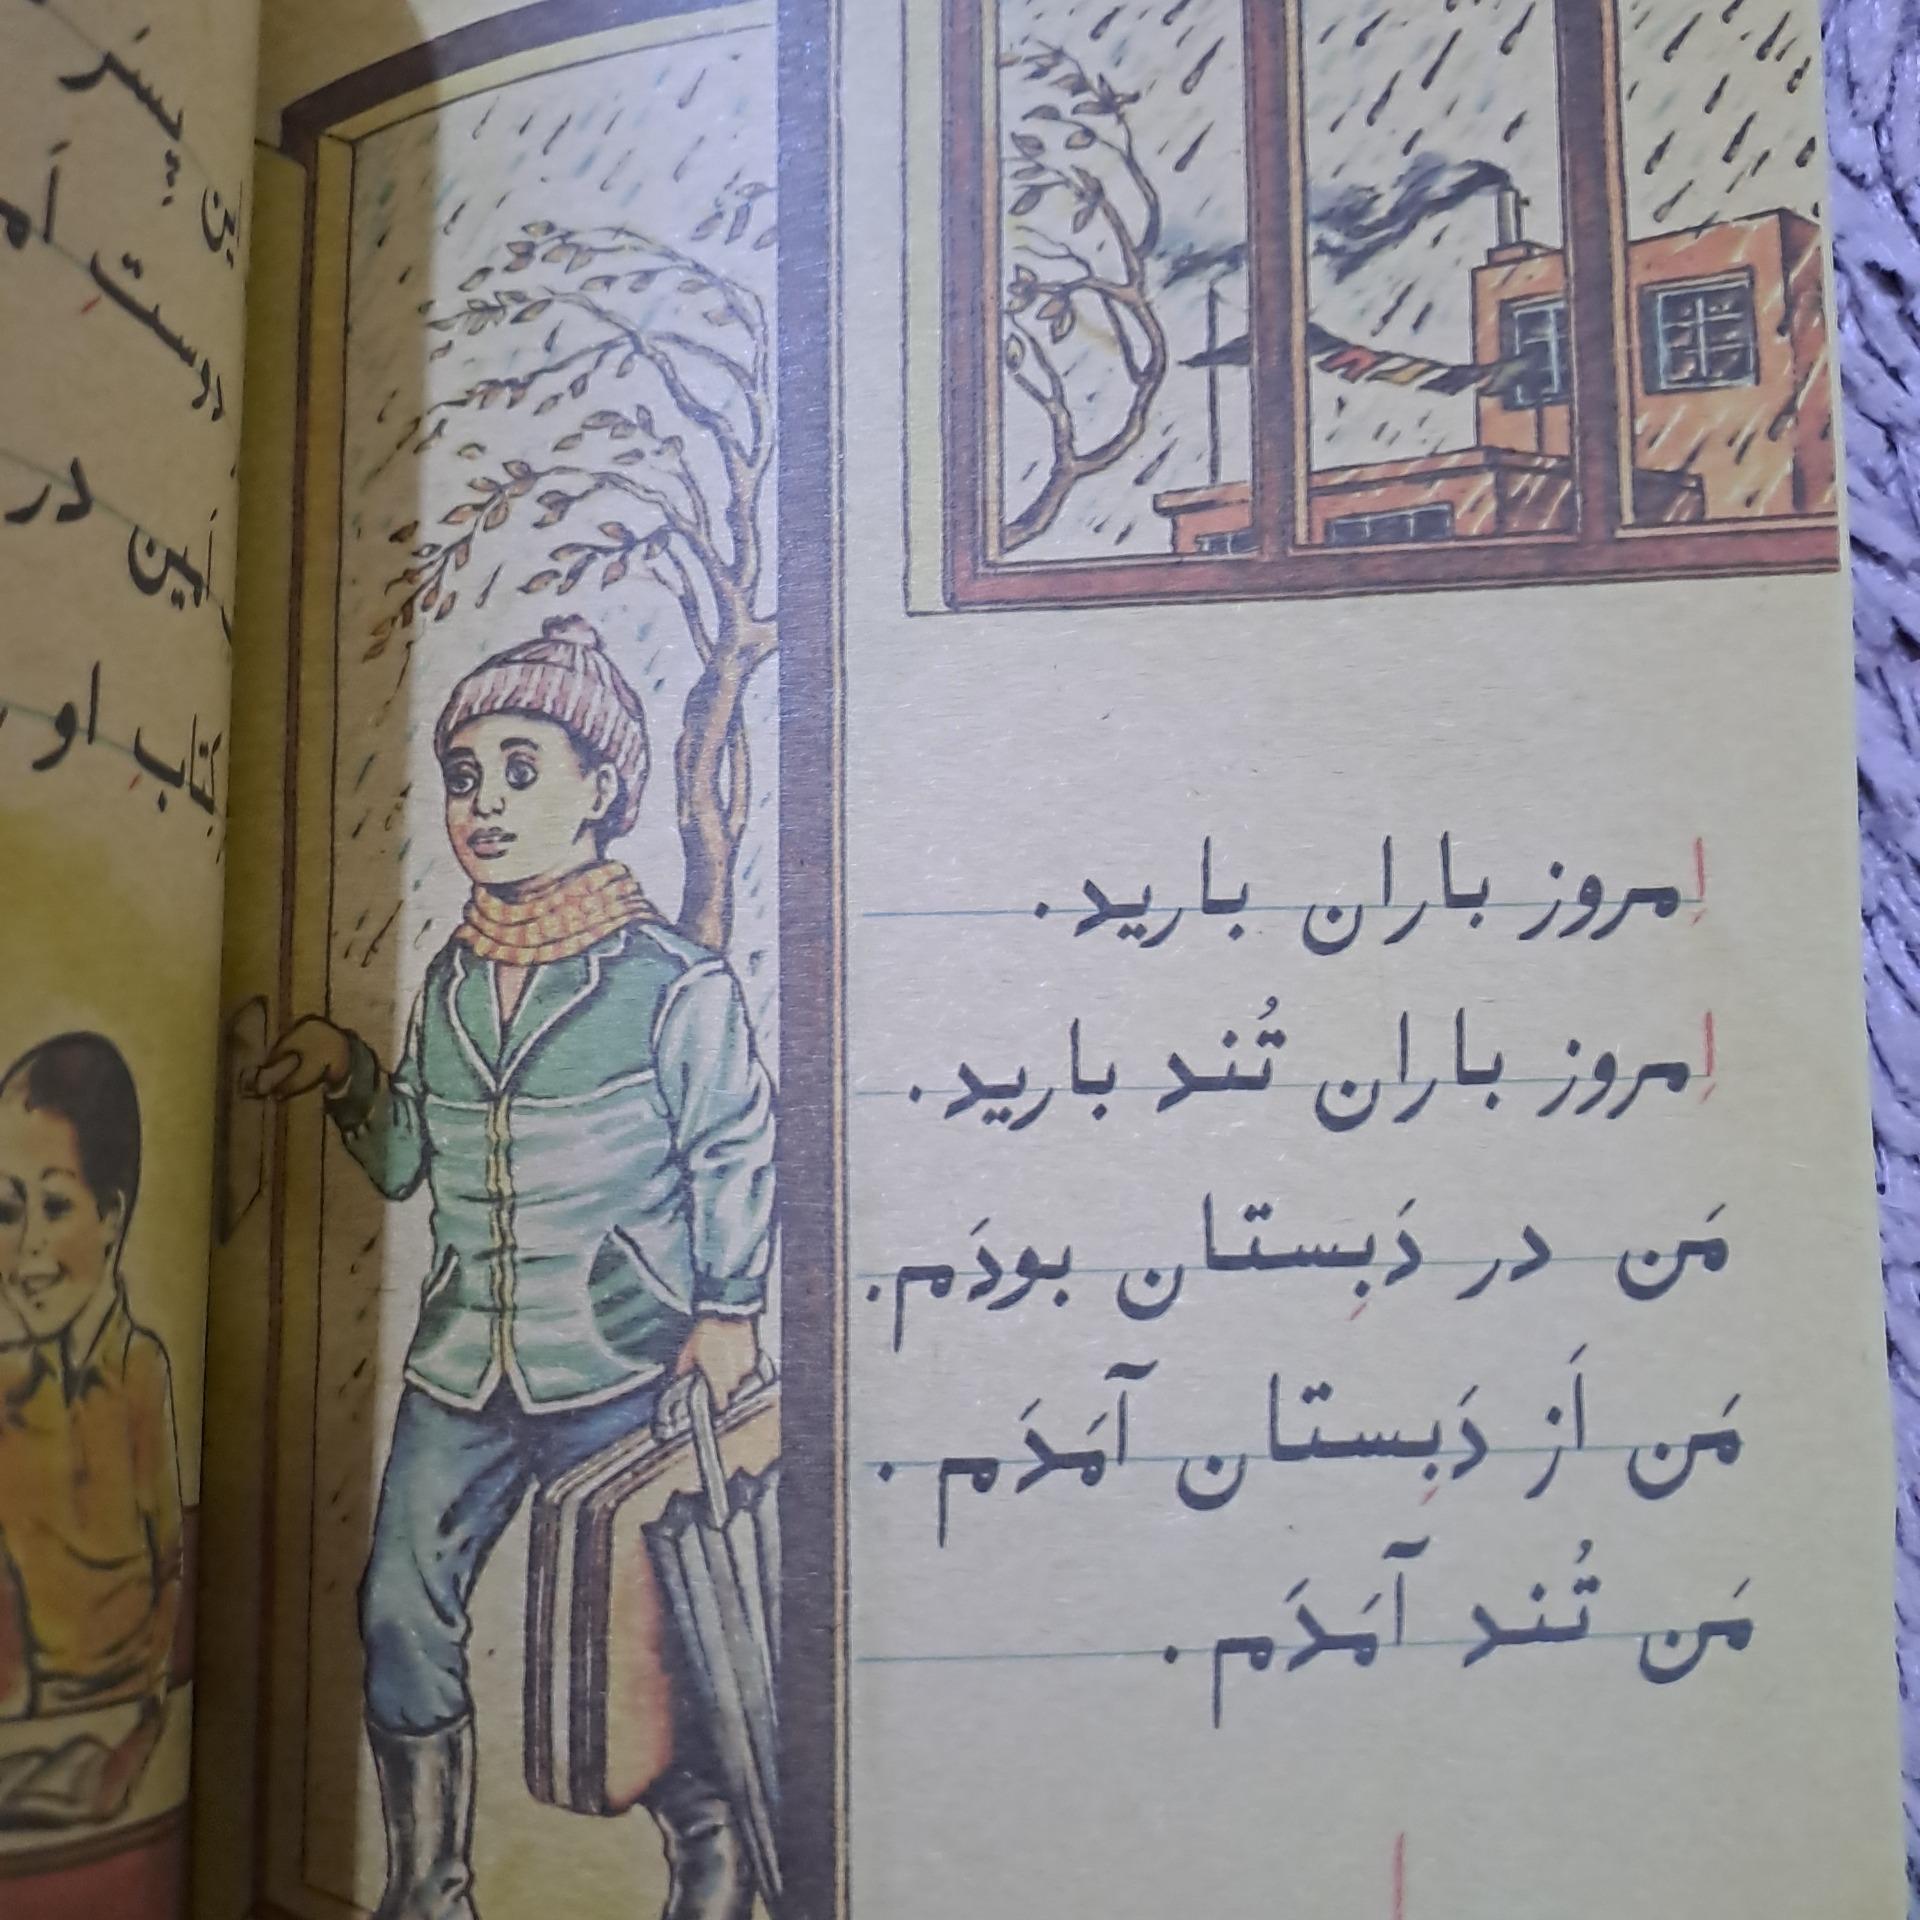 اِمروز باران بارید.
اِمروز باران تُند بارید.
مَن در دَبِستان بودَم.
مَن اَز دَبِستان آمَدَم.
مَن تُند آمَدَم.
پسر
دوست
در
او